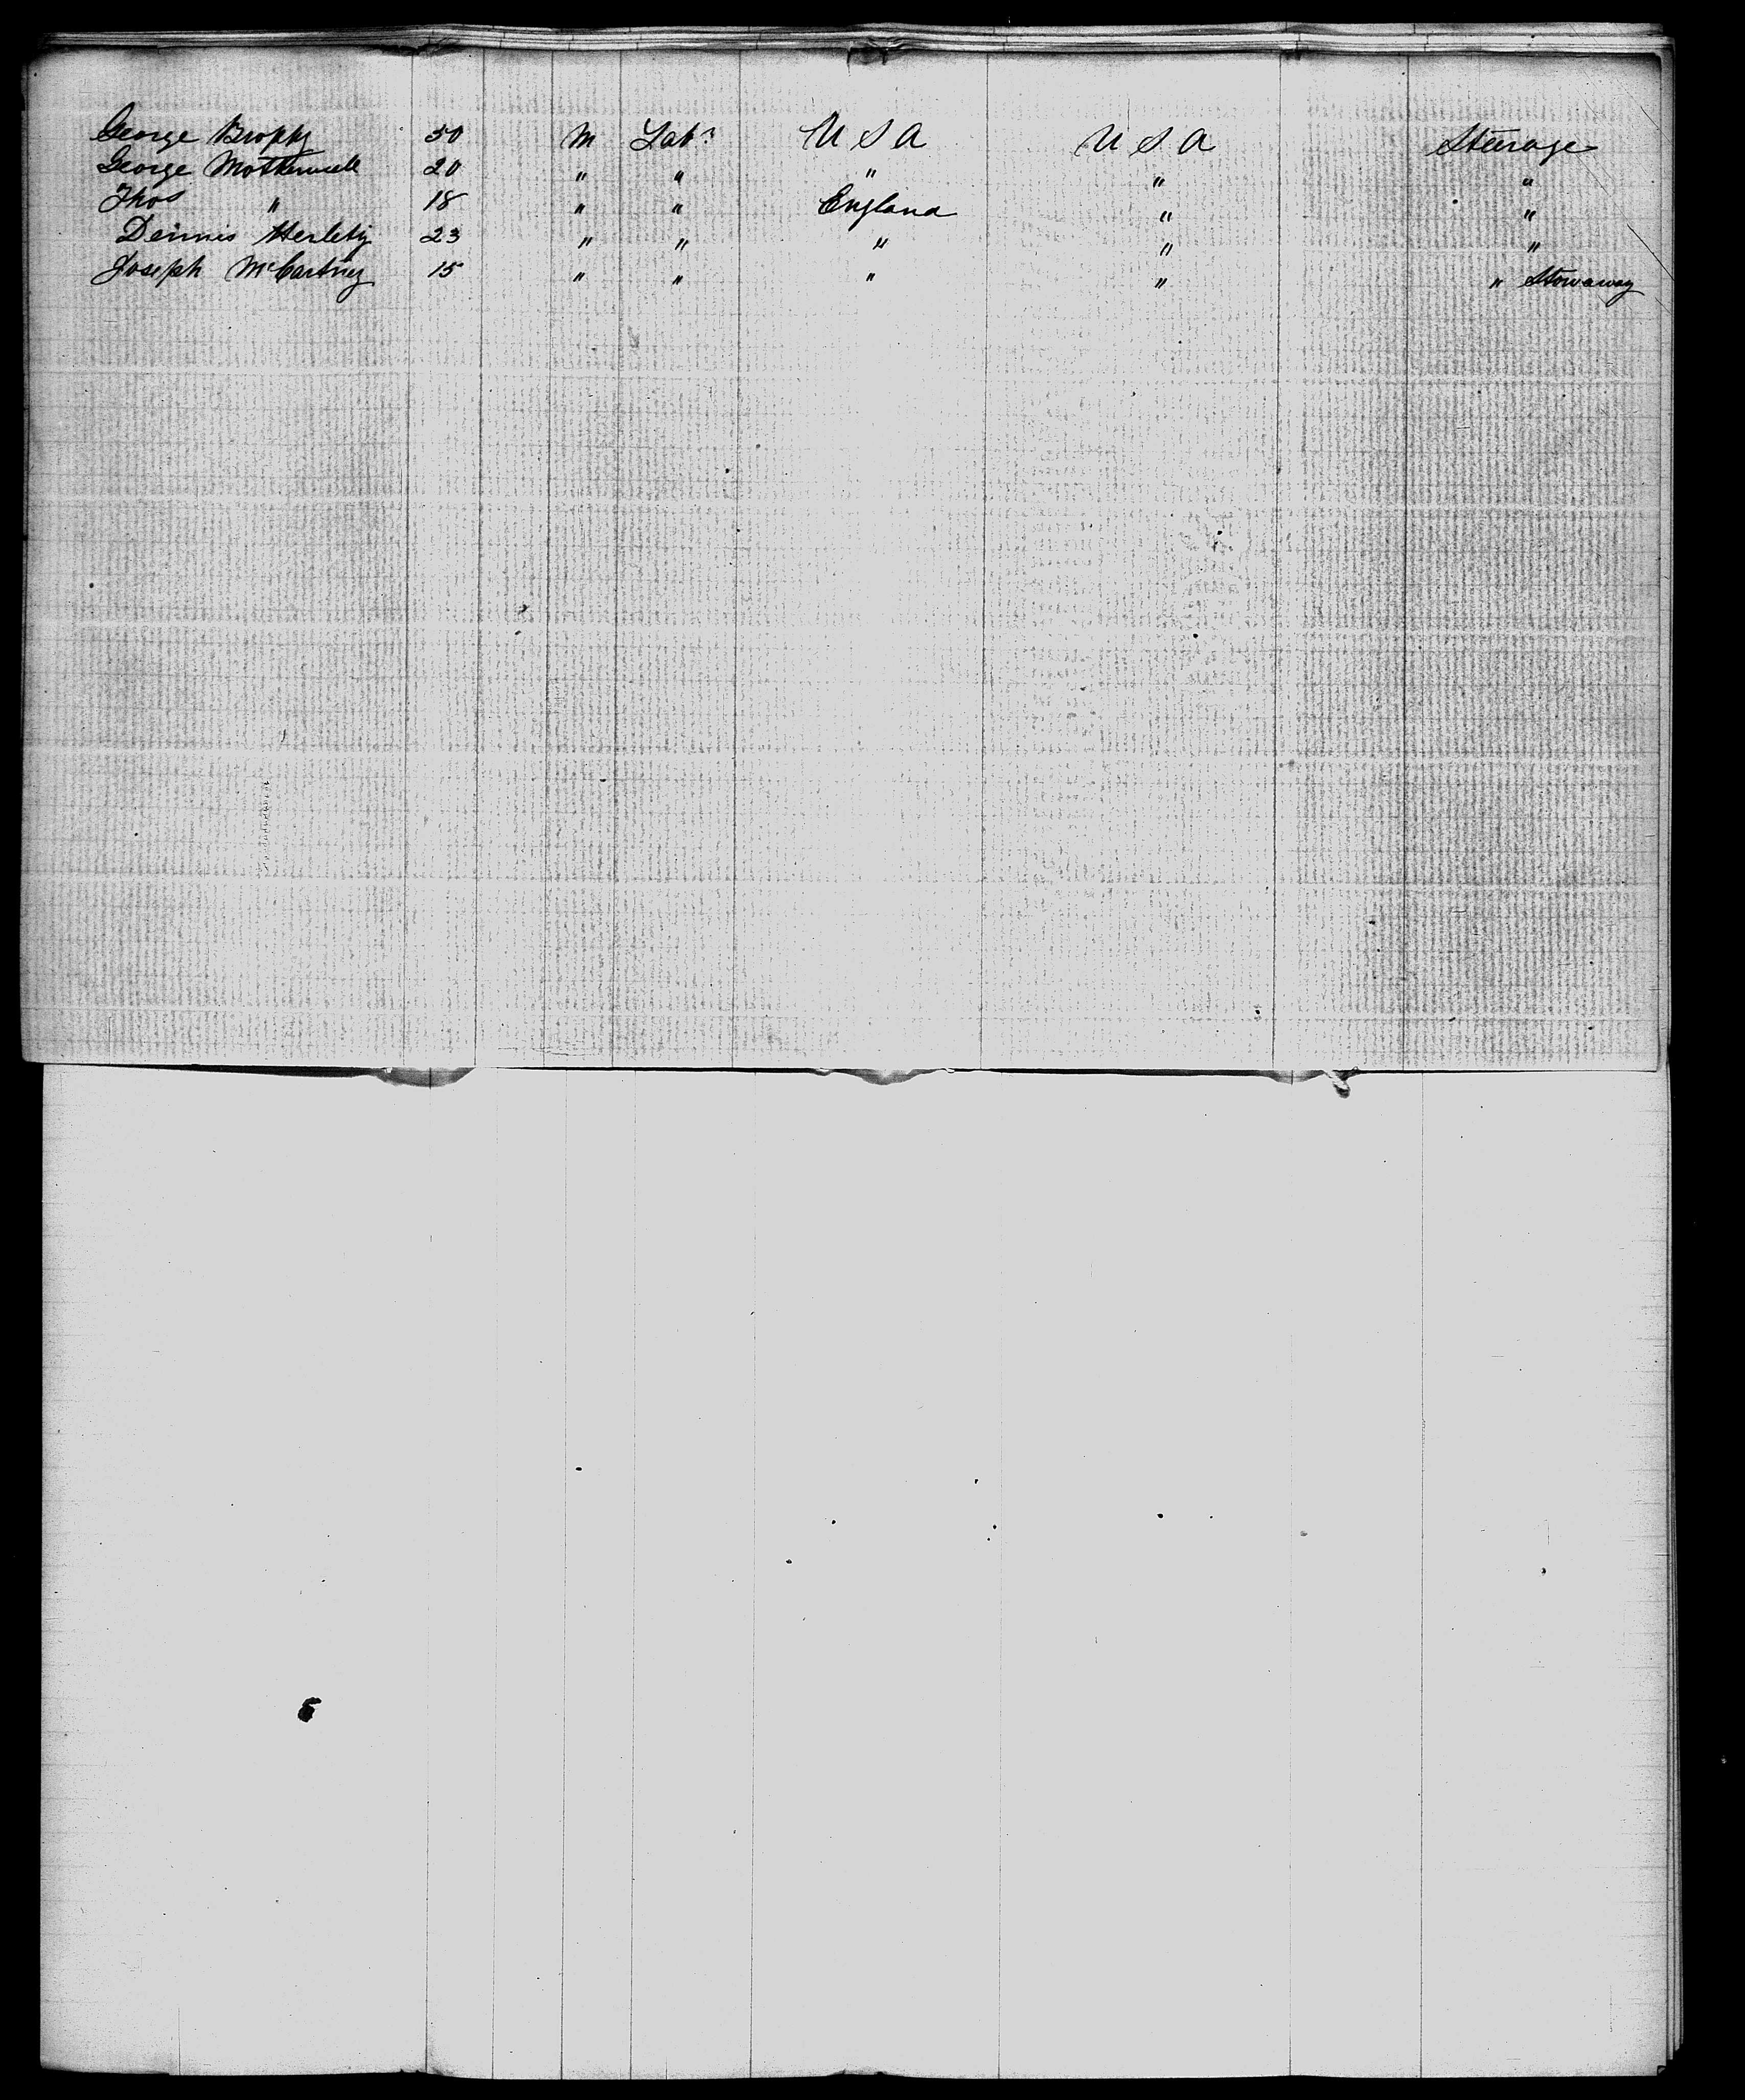 George Brophy 50 M Labr U S A U S A Steerage
George Motherwell 20 " " " " "
Thos " 18 " " England " "
Dennis Herlehy 23 " " " " "
Joseph McCartney 15 " " " " " Stowaway